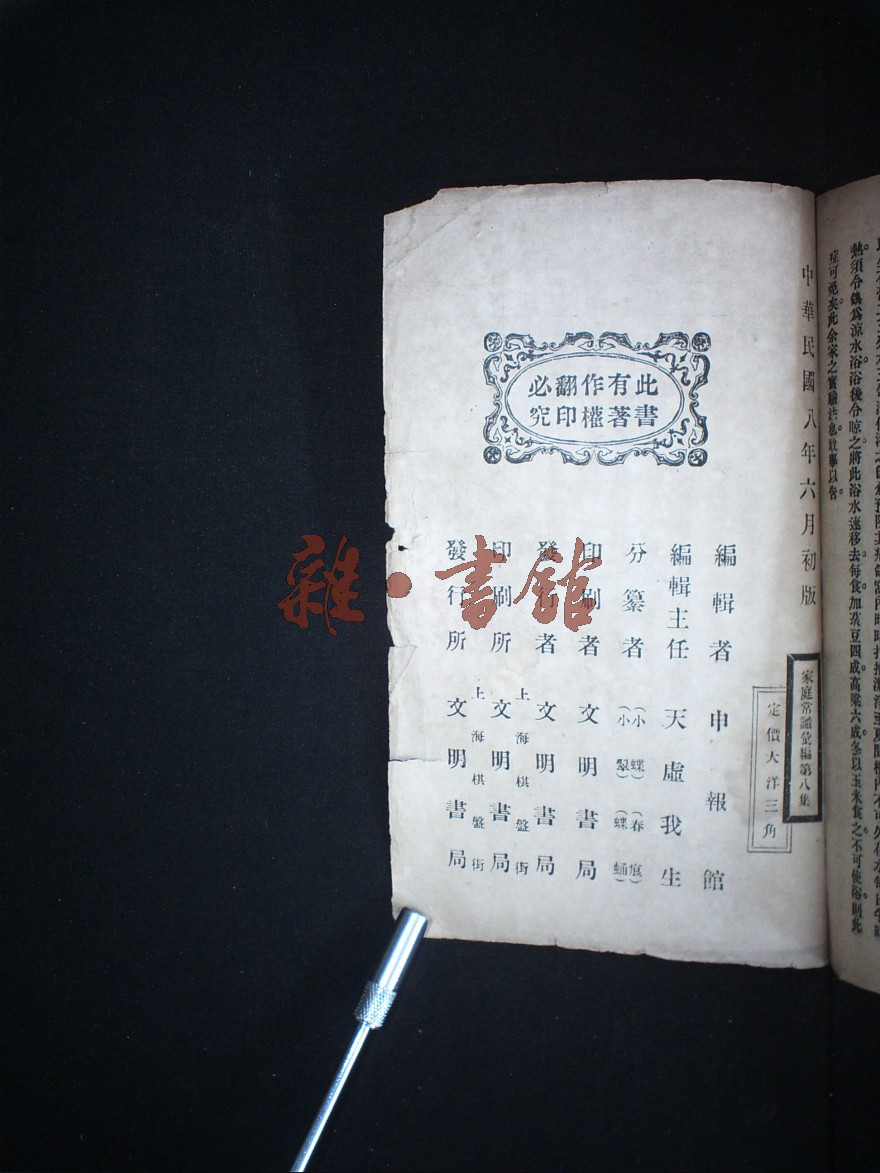 熱須令鴿爲涼水浴。浴後令晾之。將此浴水速移去。每食加菉豆四成。高粱六成。冬以玉米食之。不可使傷。則此
症可免矣。此余家之實驗法也。敢舉以告。
中華民國八年六月初版
家庭常識彙編第八集
定價大洋三角
此書有著作權翻印必究
編輯者 申報館
編輯主任 天虛我生
分纂者 (小蝶)(春痕)(小翠)(蝶蛹)
印刷者 文明書局
發行者 上海棋盤街 文明書局
印刷所 上海棋盤街 文明書局
發行所 文明書局
雜·書館